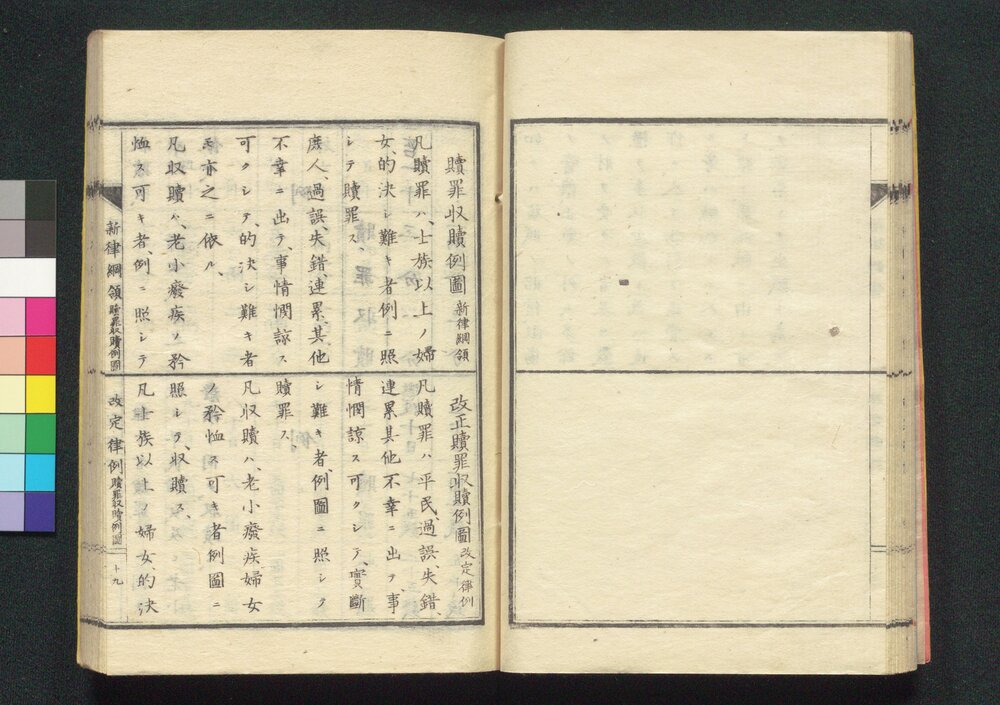 贖罪収贖例圖 新律綱領
凡贖罪ハ、士族以上ノ婦
女、的決シ難キ者、例ニ照
シテ贖罪ス、
庶人、過誤、失錯、連累、其他
不幸ニ出テ、事情憫諒ス
可クシテ、的決シ難キ者
モ亦之ニ依ル、
凡収贖ハ、老小癈疾ノ矜
恤ス可キ者、例ニ照シテ
改正贖罪収贖例圖 改定律例
凡贖罪ハ、平民、過誤、失錯、
連累其他不幸ニ出テ、事
情憫諒ス可クシテ、實斷
シ難キ者、例圖ニ照シテ
贖罪ス、
凡収贖ハ、老小癈疾婦女
ノ矜恤ス可キ者例圖ニ
照シテ、収贖ス、
凡士族以上ノ婦女的決
新律綱領 贖罪収贖例圖
改定律例 贖罪収贖例圖
十九